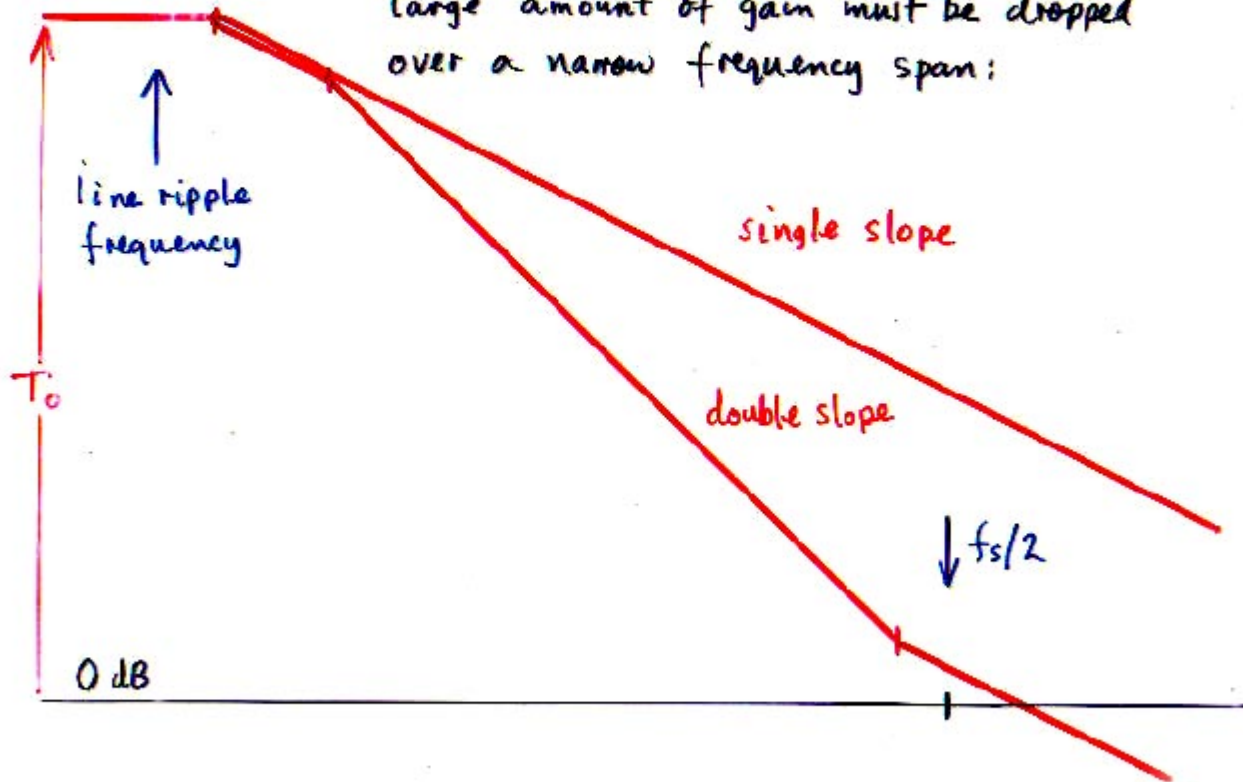 large amount of gain must be dropped
over a narrow frequency span:
line ripple
frequency
single slope
T₀
double slope
fs/2
0 dB